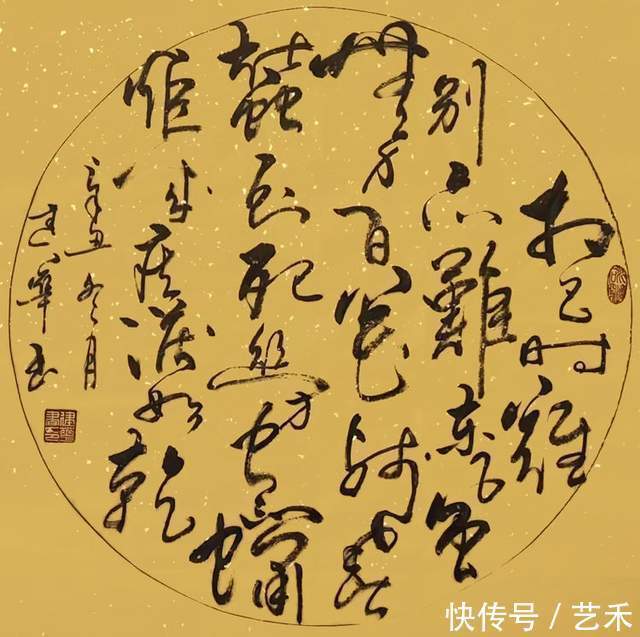 相見时難
别亦難東風
無力百花殘春
蠶到死絲方盡蠟
炬成灰淚始乾
辛丑冬月
建華书
快传号 / 艺禾